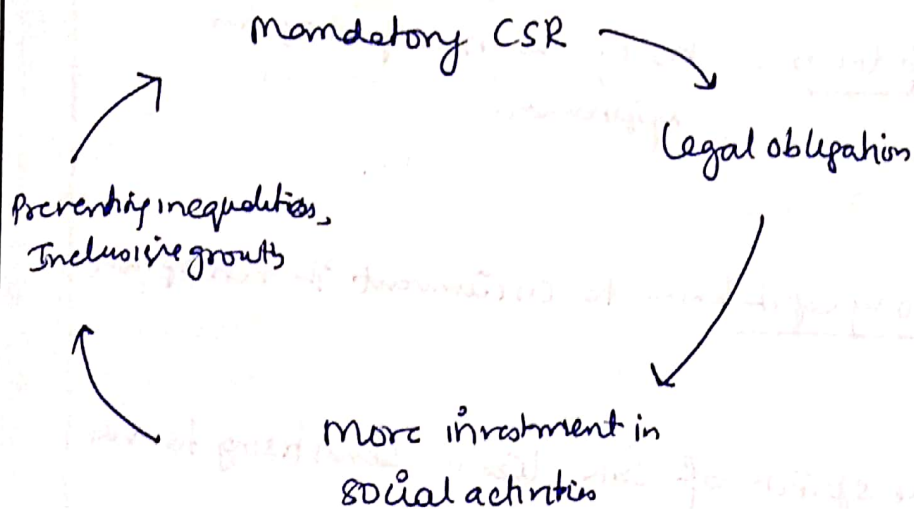 Mandatory CSR
Legal obligation
More investment in
social activities
Preventing inequalities,
Inclusive growth